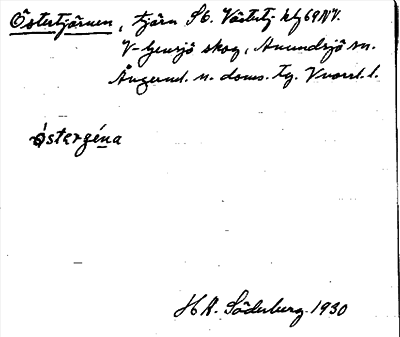 Östertjärnen, tjärn St. Västertj kbl 69NV.
V-Gensjö skog, Anundsjö sn.
Ångerml. n. doms. tg. Vnorrl. l.
östergéna
H A. Söderberg 1930